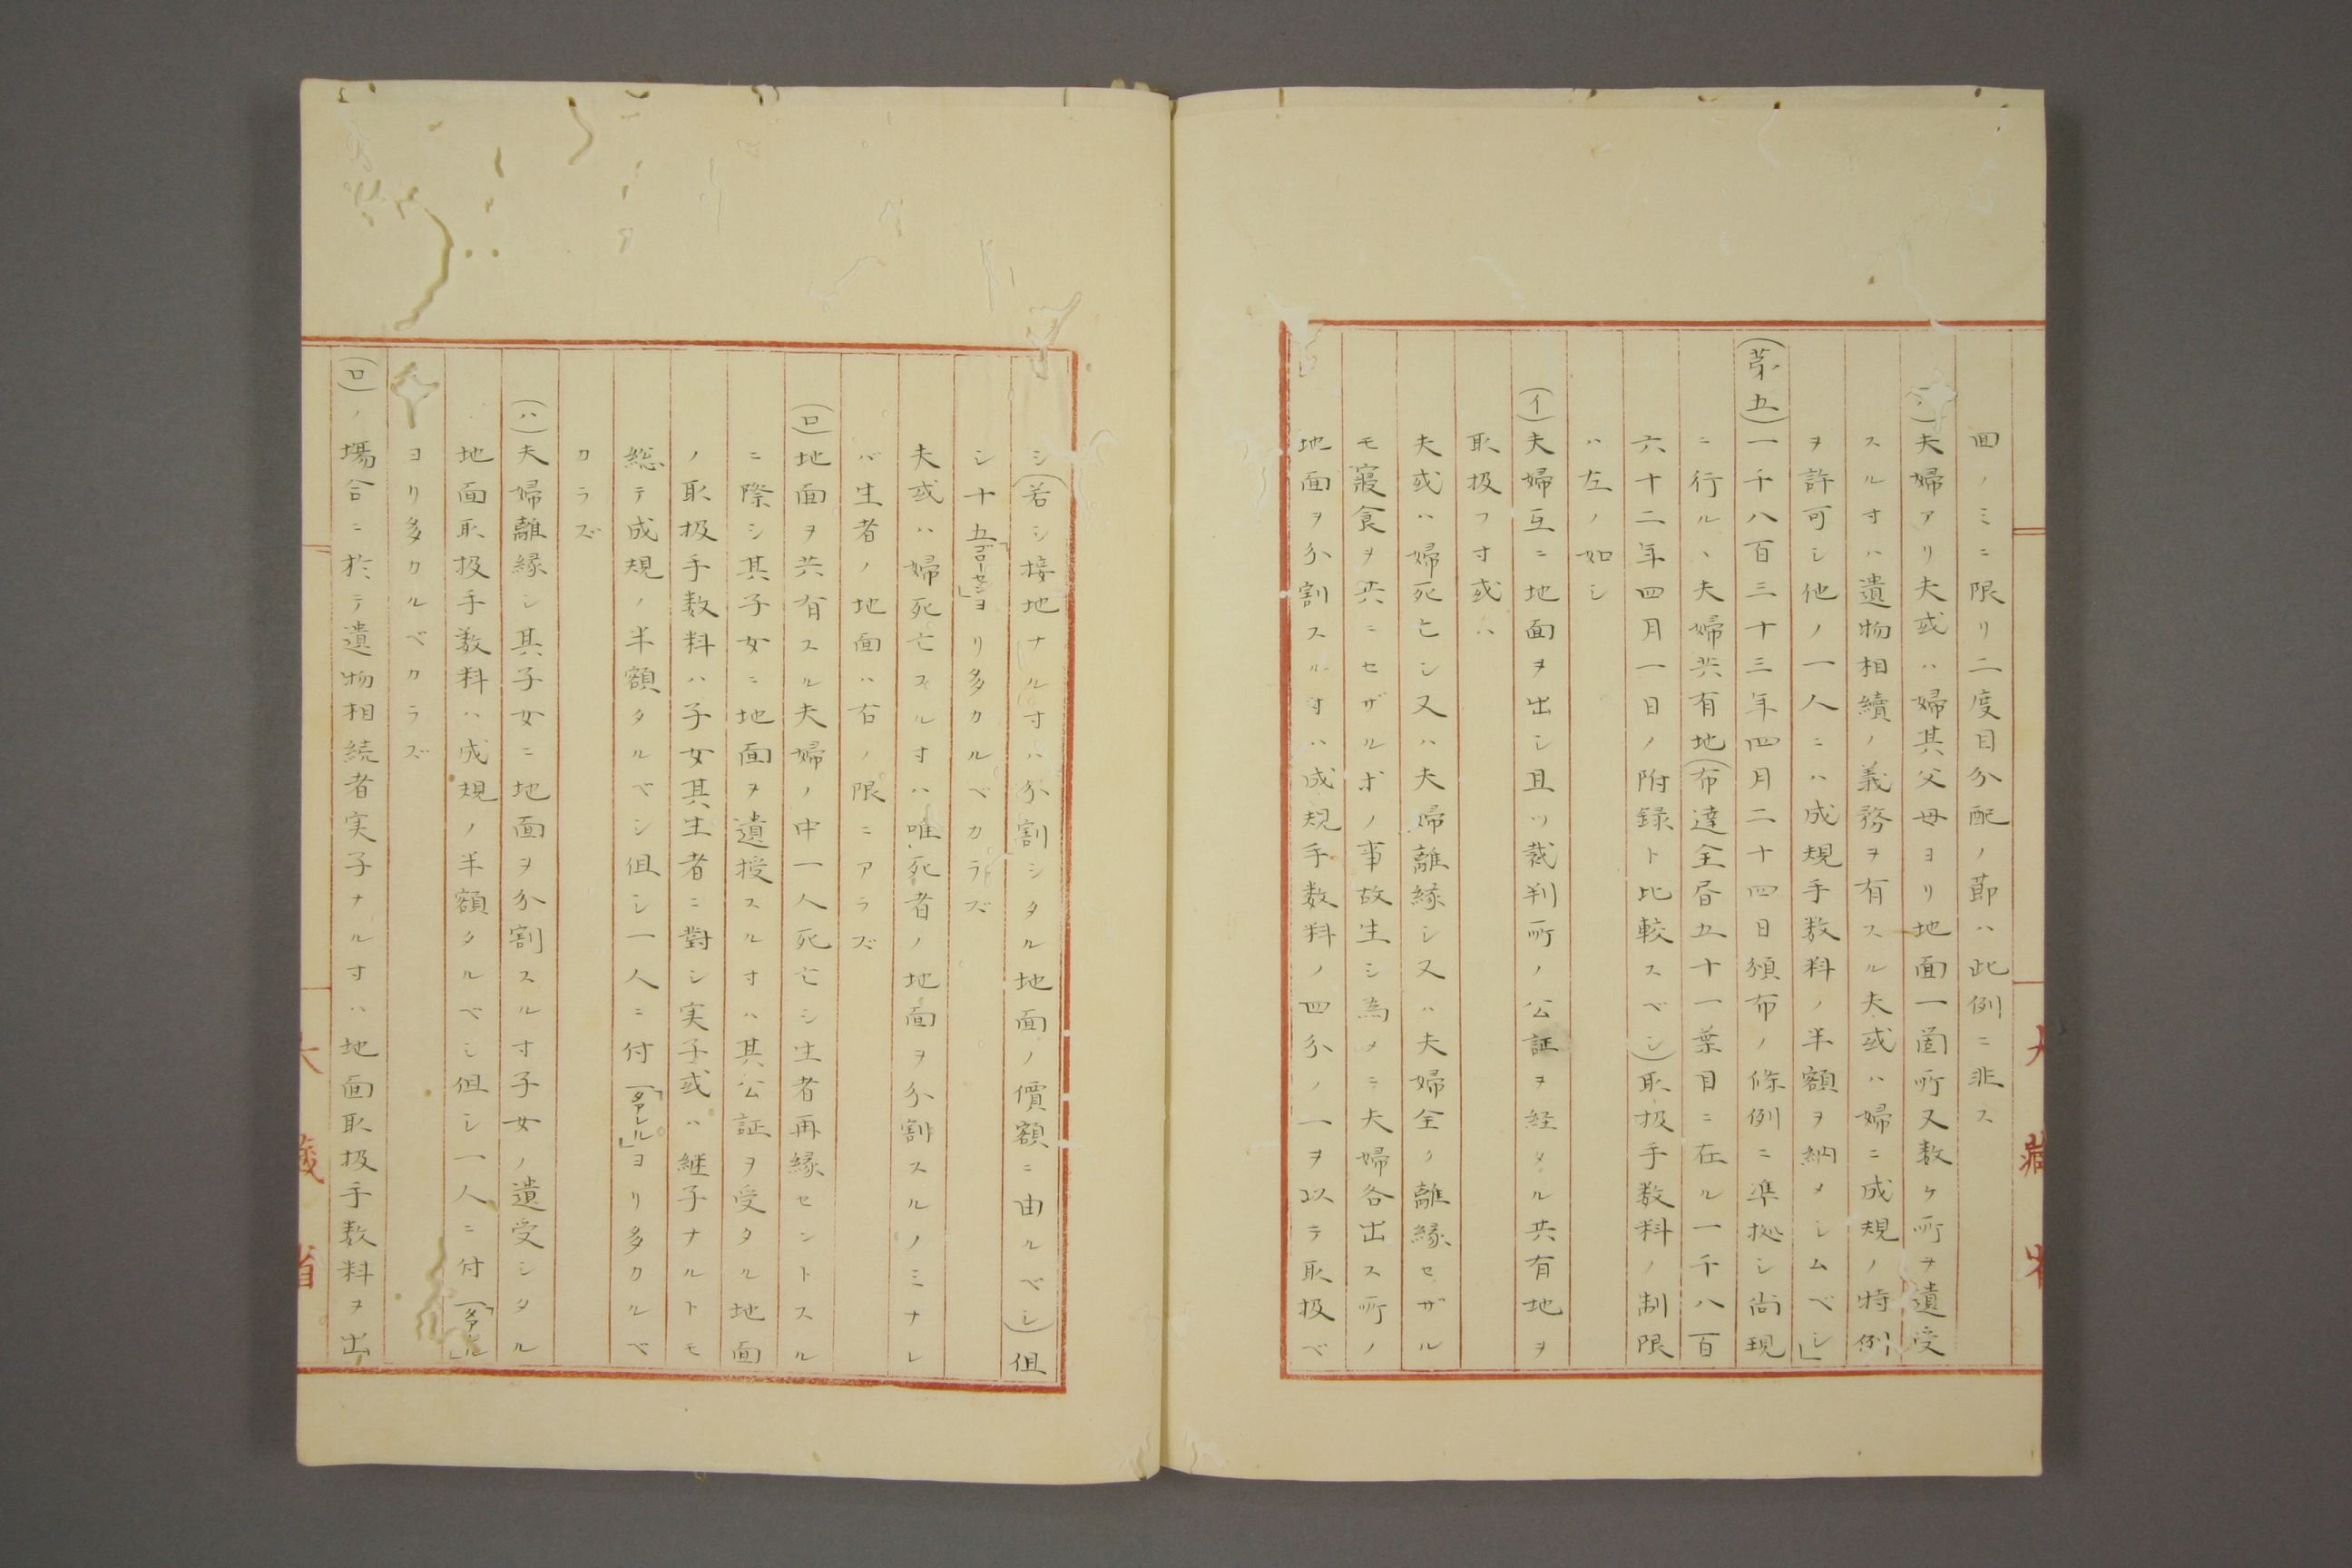 回ノミニ限リ二度目分配ノ節ハ此例ニ非ス
夫婦アリ夫或ハ婦其父母ヨリ地面一箇所又数ケ所ヲ遺受
スルヿハ遺物相續ノ義務ヲ有スル夫或ハ婦ニ成規ノ特例
ヲ許可シ他ノ一人ニハ成規手数料ノ半額ヲ納メシムベシ」
(苐五)一千八百三十三年四月二十四日頒布ノ條例ニ準拠シ尚現
ニ行ルヽ夫婦共有地(布達全昏五十一葉目ニ在ル一千八百
六十二年四月一日ノ附録ト比較スベシ)取扱手数料ノ制限
ハ左ノ如シ
(イ)夫婦互ニ地面ヲ出シ且ツ裁判所ノ公証ヲ経タル共有地ヲ
取扱フヿ或ハ
夫或ハ婦死亡シ又ハ夫婦離縁シ又ハ夫婦全ク離縁セザル
モ寢食ヲ共ニセザルホノ事故生シ為メニ夫婦各出ス所ノ
地面ヲ分割スルヿハ成規手数料ノ四分ノ一ヲ以テ取扱ベ
シ(若シ接地ナルヿハ分割シタル地面ノ價額ニ由ルベシ)但
シ十五「ゴローセン」ヨリ多カルベカラズ
夫或ハ婦死亡スルヿハ唯死者ノ地面ヲ分割スルノミナレ
バ生者ノ地面ハ右ノ限ニアラズ
(ロ)地面ヲ共有スル夫婦ノ中一人死亡シ生者再縁セントスル
ニ際シ其子女ニ地面ヲ遺授スルヿハ其公証ヲ受タル地面
ノ取扱手数料ハ子女其生者ニ對シ実子或ハ継子ナルトモ
総テ成規ノ半額タルベシ但シ一人ニ付「ターレル」ヨリ多カルベ
カラズ
(ハ)夫婦離縁シ其子女ニ地面ヲ分割スルヿ子女ノ遺受シタル
地面取扱手数料ハ成規ノ半額タルベシ但シ一人ニ付「ターレル」
ヨリ多カルベカラズ
(ロ)ノ場合ニ於テ遺物相続者実子ナルヿハ地面取扱手数料ヲ出
大藏省